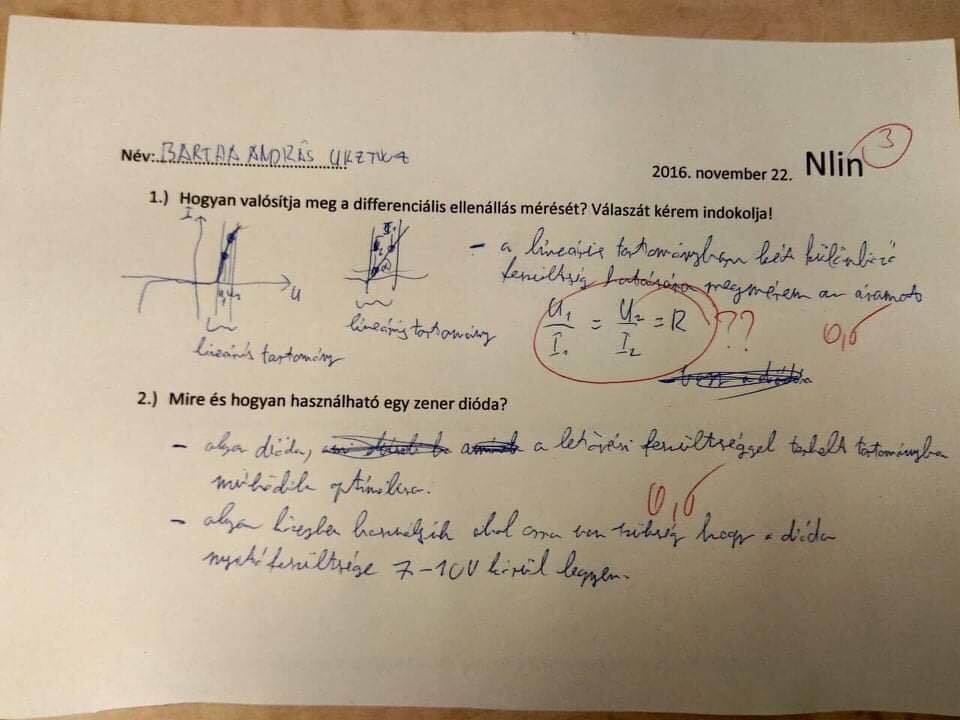 Név: BARTHA ANDRÁS
2016. november 22. Nlin 3
1.) Hogyan valósítja meg a differenciális ellenállás mérését? Válaszát kérem indokolja!
I
U
lineáris tartomány
lineáris tartomány
- a lineáris tartományban két különböző
feszültség hatására megmérem az áramot
U₁/I₁ = U₂/I₂ = R ??
0,5
2.) Mire és hogyan használható egy zener dióda?
- olyan dióda, a letörési feszültséggel terhelt tartományban
működik optimálisan.
0,5
- olyan használják ahol arra van szükség hogy a dióda
nyitófeszültsége 7-10V körül legyen.